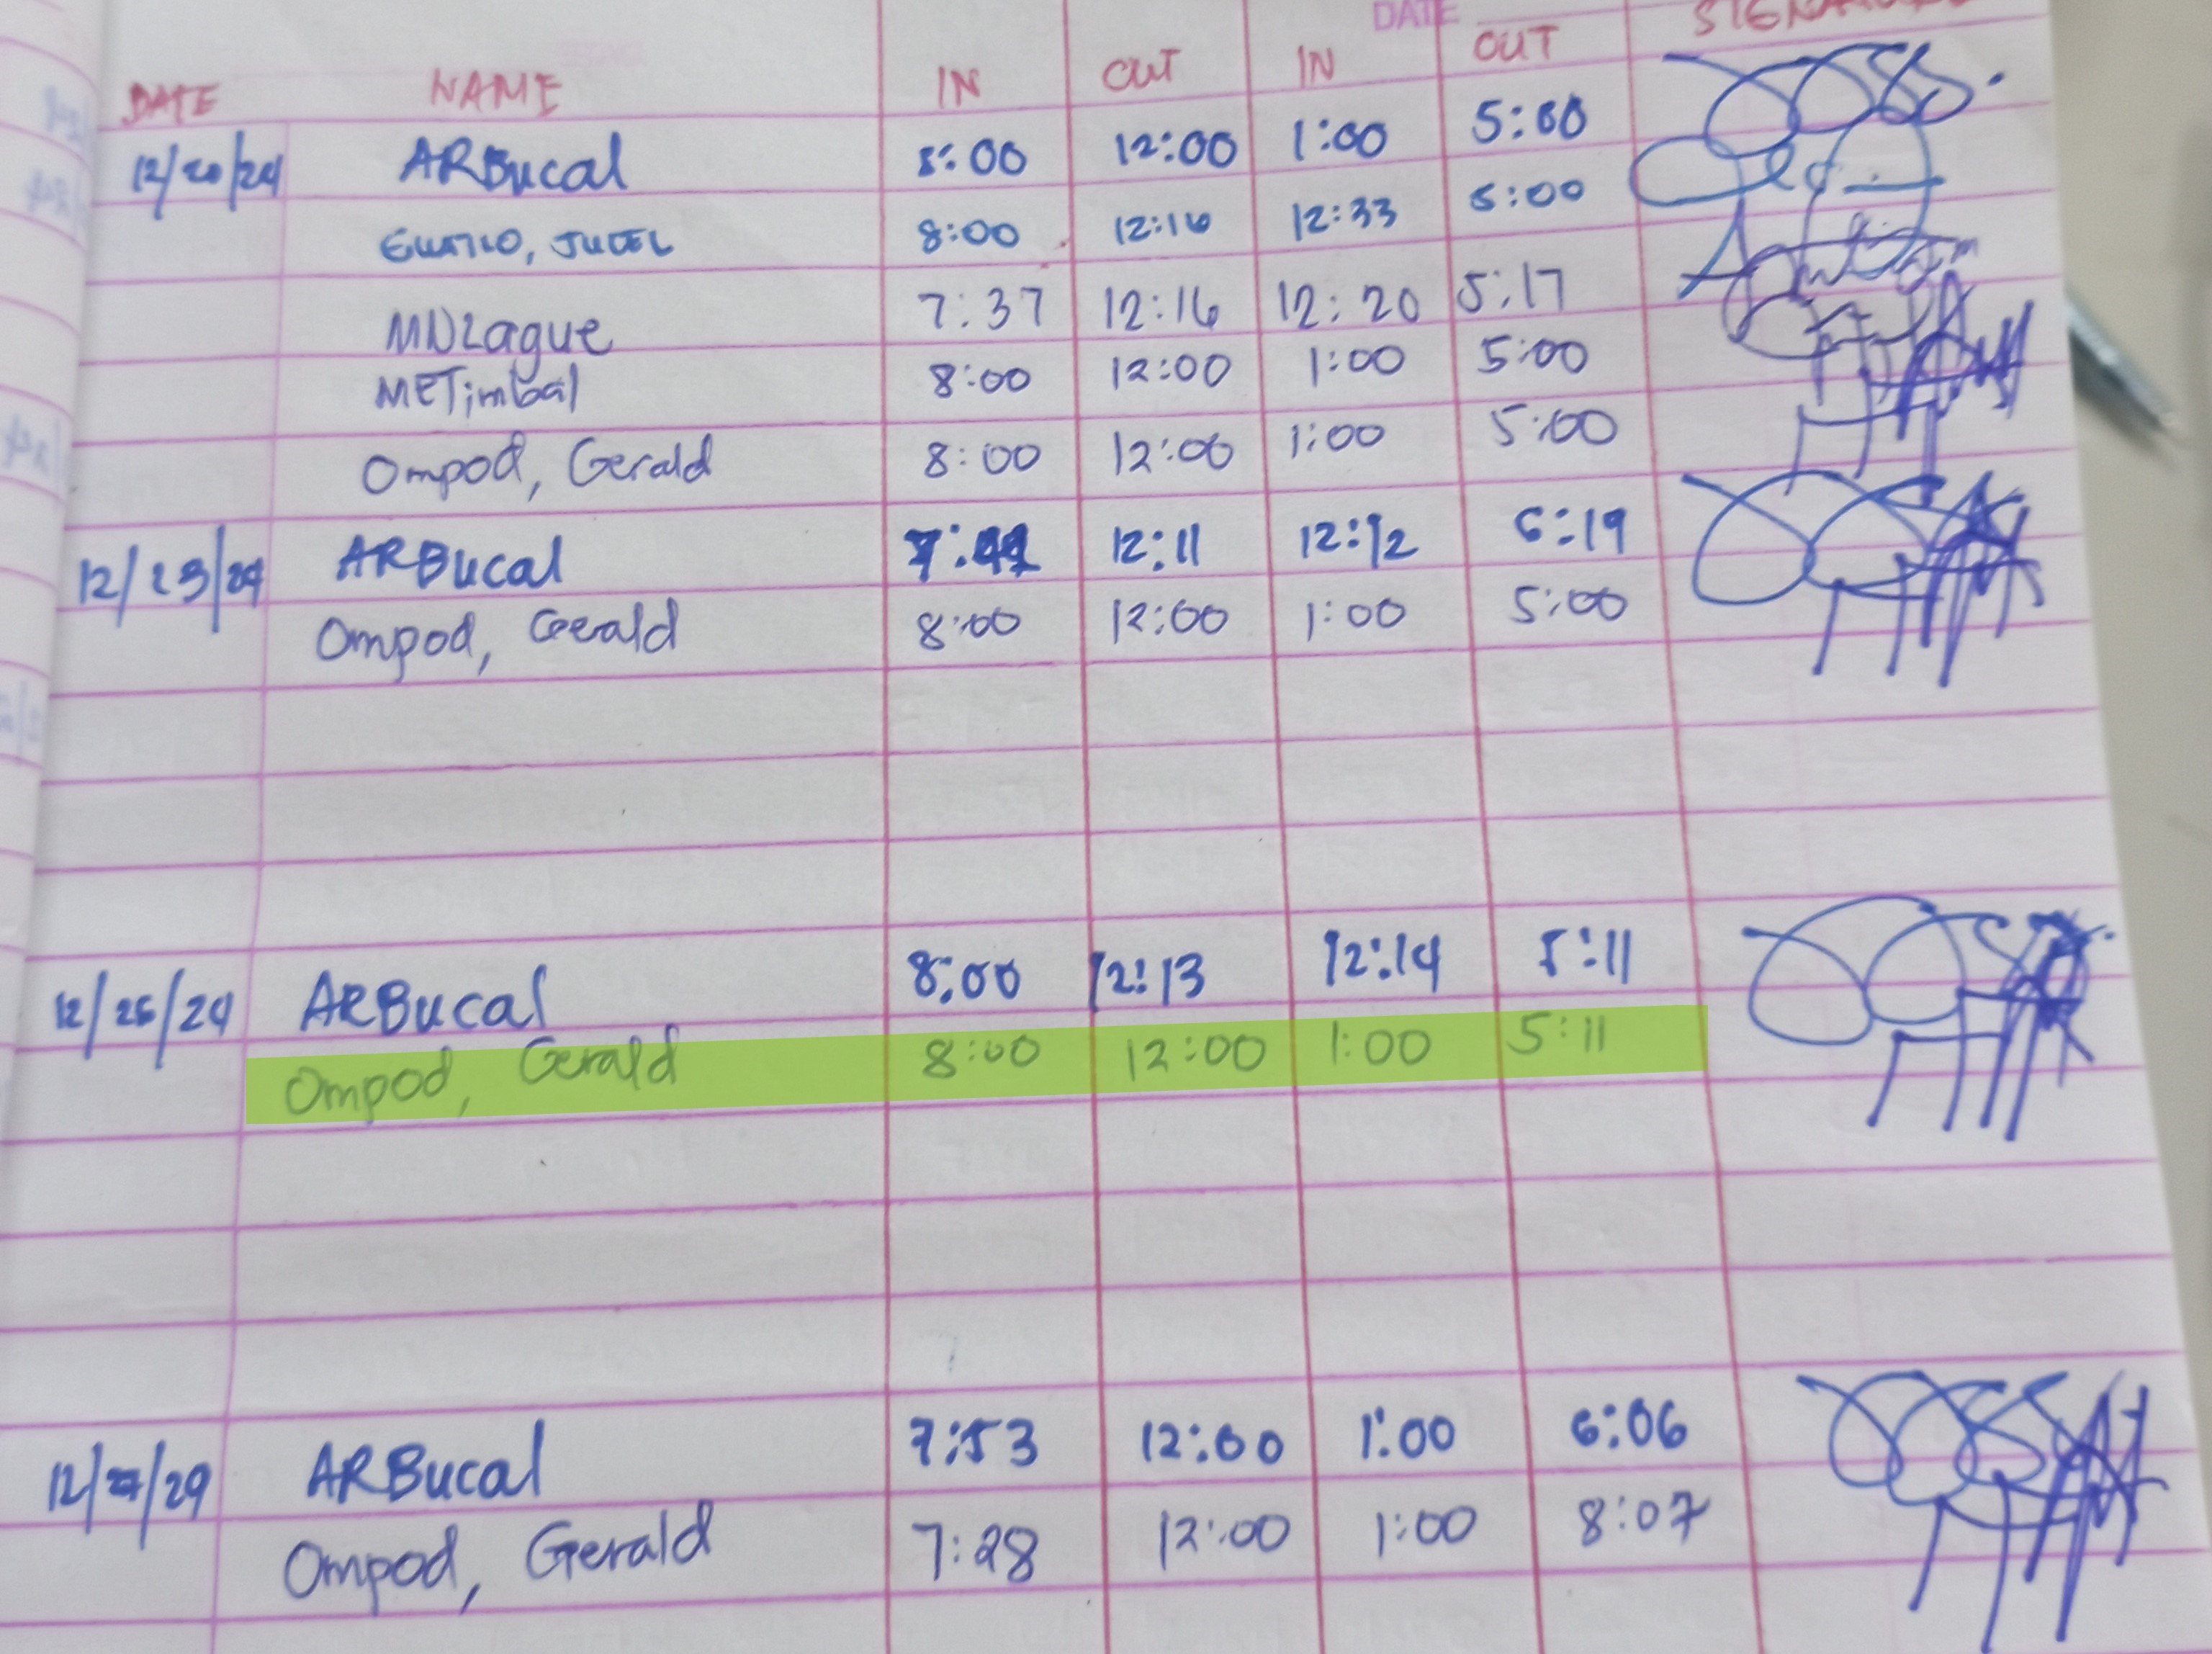 DATE
DATE NAME IN OUT IN OUT
12/20/24 ARBucal 8:00 12:00 1:00 5:00
8:00 12:16 12:33 5:00
7:37 12:16 12:20 5:17
METimbal 8:00 12:00 1:00 5:00
Ompod, Gerald 8:00 12:00 1:00 5:00
12/23/24 ARBucal 12:11 12:12 6:19
Ompod, Gerald 8:00 12:00 1:00 5:00
12/26/24 ARBucal 8:00 12:13 12:14 5:11
Ompod, Gerald 8:00 12:00 1:00 5:11
ARBucal 7:53 12:00 1:00 6:06
Ompod, Gerald 7:28 12:00 1:00 8:07